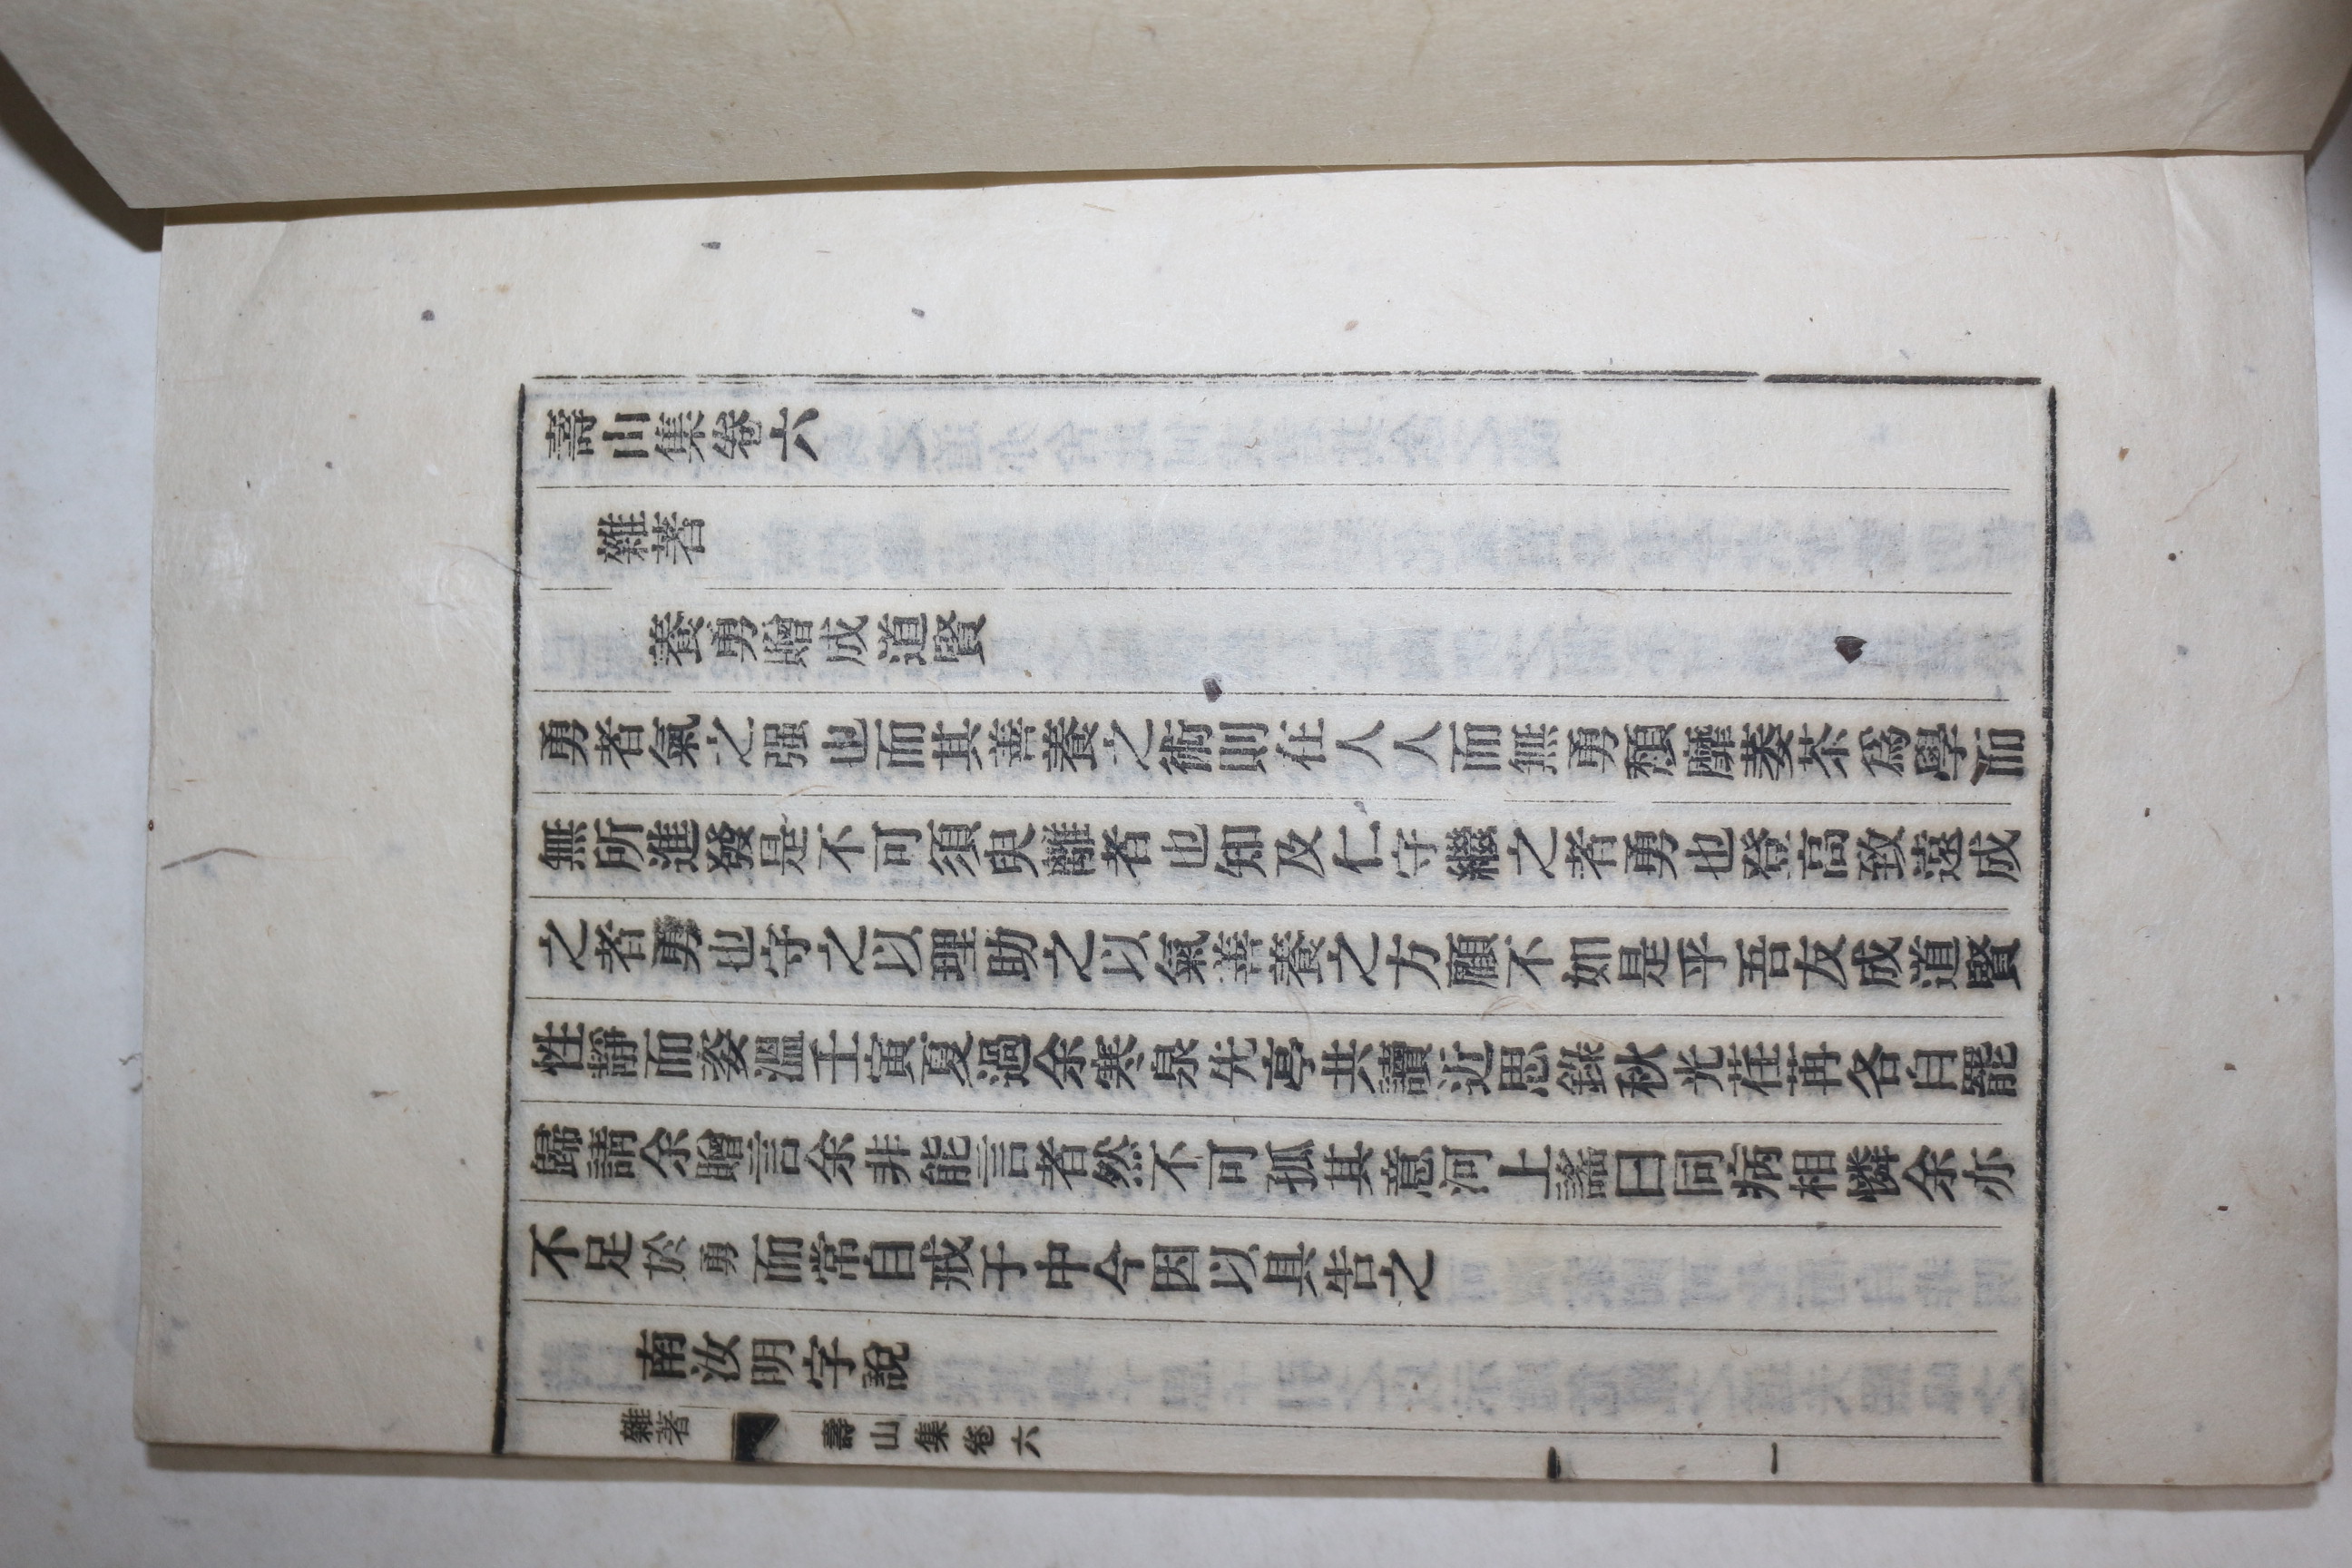 壽山集卷六
雜著
養勇贈成道賢
勇者氣之强也而其善養之術則在人人而無勇頹靡萎茶爲學而
無所進發是不可須臾離者也知及仁守繼之者勇也登高致遠成
之者勇也守之以理助之以氣善養之方顧不如是乎吾友成道賢
性靜而姿溫壬寅夏過余寒泉先亭共讀近思錄秋光荏苒各自罷
歸請余贈言余非能言者然不可孤其意河上謠曰同病相憐余亦
不足於勇而常自戒于中今因以具告之
南汝明字說
雜著 壽山集卷六 一